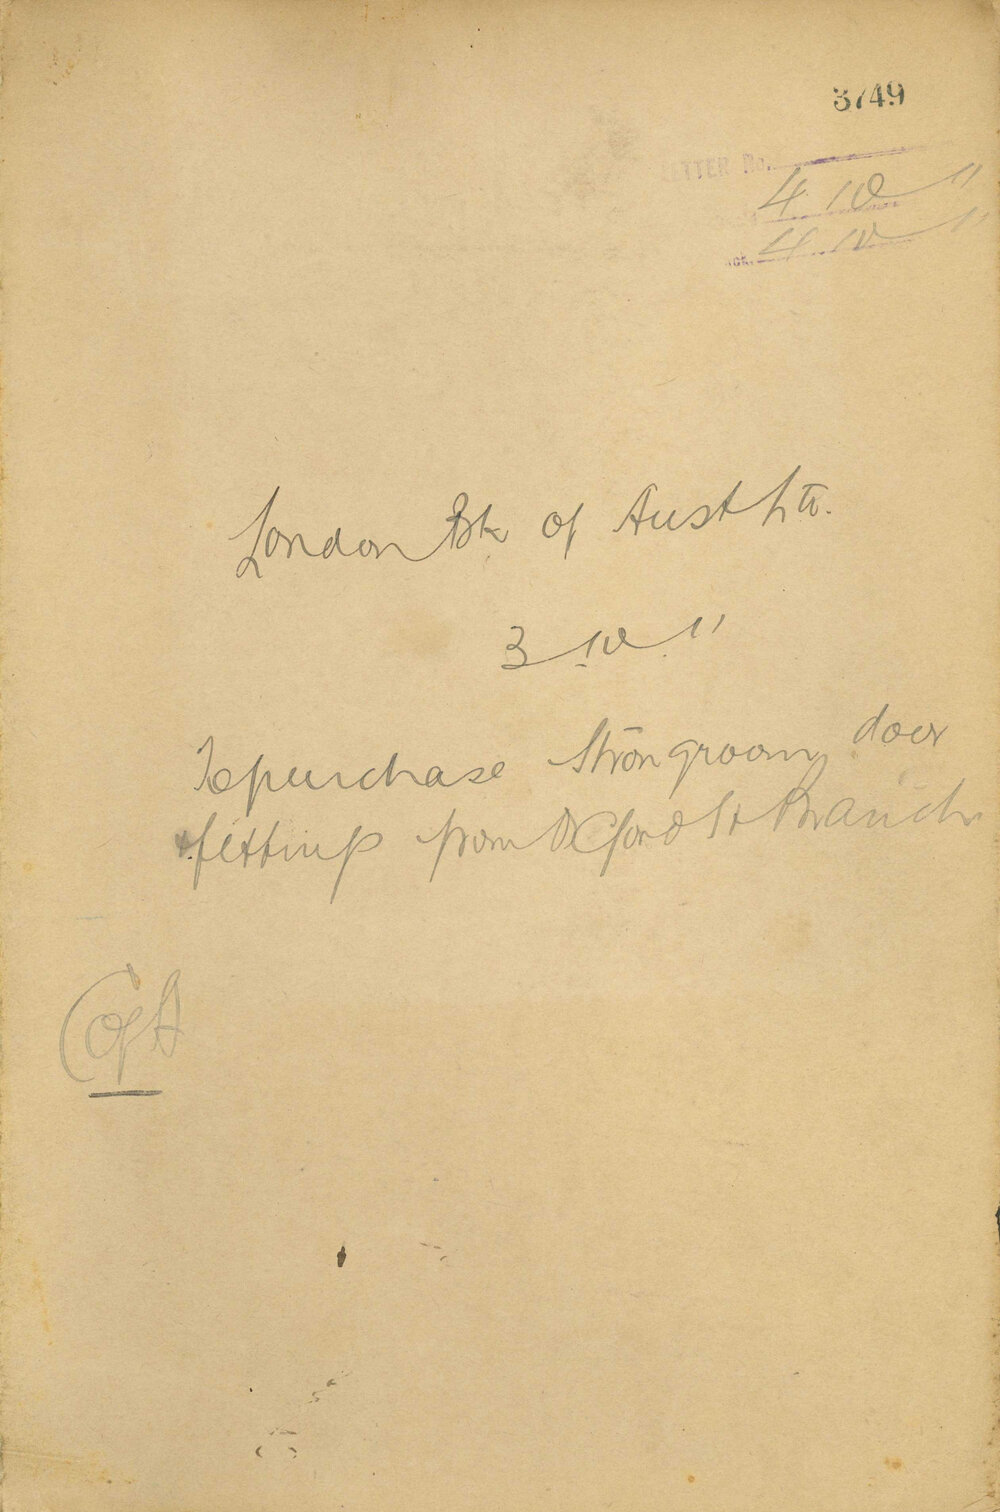 3749
LETTER No.
4 10 11
ACK. 4 10 11
London Bk of Aust Ltd.
3 10 11
Re purchase Strongroom door
fittings from Oxford St Branch
C of A